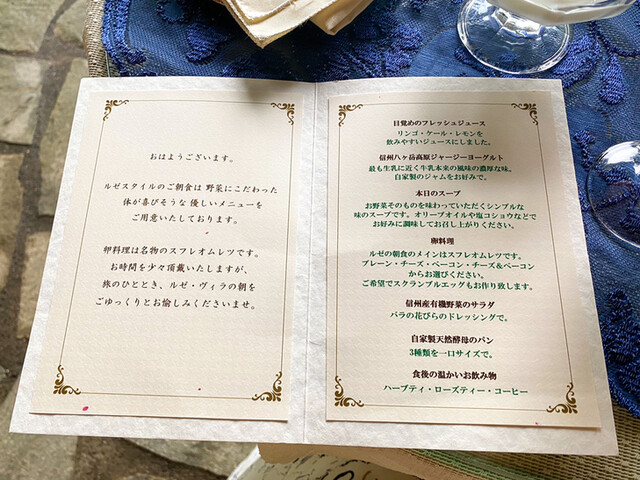 おはようございます。
ルゼスタイルのご朝食は 野菜にこだわった
体が喜びそうな 優しいメニューを
ご用意いたしております。
卵料理は名物のスフレオムレツです。
お時間を少々頂戴いたしますが、
旅のひととき、ルゼ・ヴィラの朝を
ごゆっくりとお愉しみくださいませ。
目覚めのフレッシュジュース
リンゴ・ケール・レモンを
飲みやすいジュースにしました。
信州八ヶ岳高原ジャージーヨーグルト
最も生乳に近く牛乳本来の風味の濃厚な味。
自家製のジャムをお好みで。
本日のスープ
お野菜そのものを味わっていただくシンプルな
味のスープです。オリーブオイルや塩コショウなどで
お好みに調味してお召し上がりください。
卵料理
ルゼの朝食のメインはスフレオムレツです。
プレーン・チーズ・ベーコン・チーズ&ベーコン
からお選びください。
ご希望でスクランブルエッグもお作り致します。
信州産有機野菜のサラダ
バラの花びらのドレッシングで。
自家製天然酵母のパン
3種類を一口サイズで。
食後の温かいお飲み物
ハーブティ・ローズティー・コーヒー